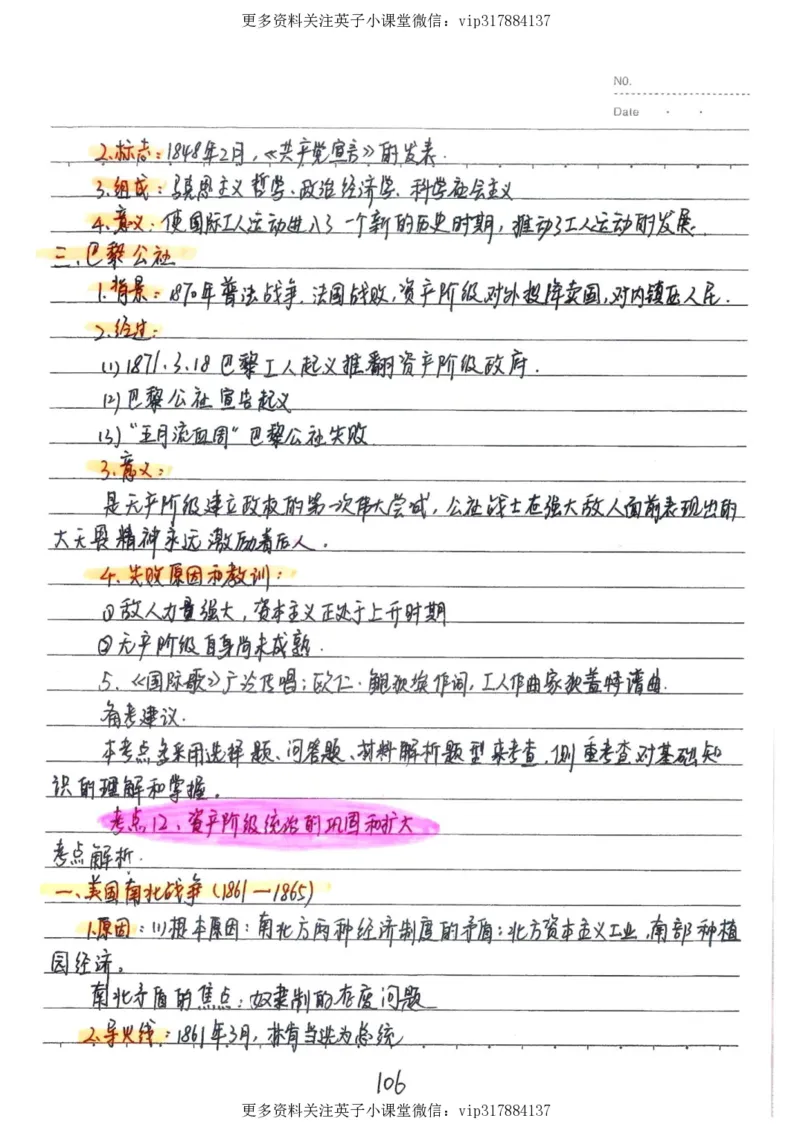 更多资料关注英子小课堂微信：vip317884137
NO.
Date
2.标志：1848年2月，《共产党宣言》的发表．
3.组成：马克思主义哲学、政治经济学、科学社会主义
4.意义：使国际工人运动进入了一个新的历史时期，推动了工人运动的发展．
三、巴黎公社
1.背景：1870年普法战争，法国战败，资产阶级对外投降卖国，对内镇压人民．
2.经过：
(1)1871.3.18巴黎工人起义推翻资产阶级政府．
(2)巴黎公社宣告起义
(3)“五月流血周”巴黎公社失败
3.意义：
是无产阶级建立政权的第一次伟大尝试，公社战士在强大敌人面前表现出的
大无畏精神永远激励着后人．
4.失败原因和教训：
①敌人力量强大，资本主义正处于上升时期
②无产阶级自身尚未成熟．
5.《国际歌》广泛传唱；欧仁·鲍狄埃作词，工人作曲家狄盖特谱曲．
备考建议．
本考点多采用选择题、问答题、材料解析题型来考查，侧重考查对基础知
识的理解和掌握。
考点12、资产阶级统治的巩固和扩大
考点解析．
一、美国南北战争（1861—1865）
1.原因：(1)根本原因：南北方两种经济制度的矛盾：北方资本主义工业，南部种植
园经济。
南北矛盾的焦点：奴隶制的存废问题
2.导火线：1861年3月，林肯当选为总统
106
更多资料关注英子小课堂微信：vip317884137